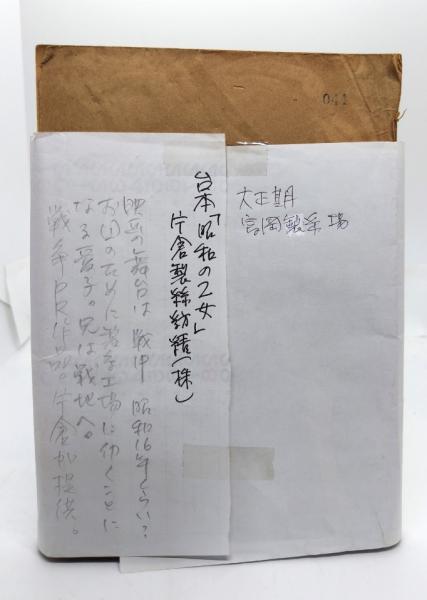 041
大正期
富岡製糸場
台本「昭和の乙女」
片倉製絲紡績(株)
映画の舞台は戦中 昭和16年くらい?
お国のために工場に働くことに
なる子。兄は戦地へ。
戦争PR作品。片倉が提供。